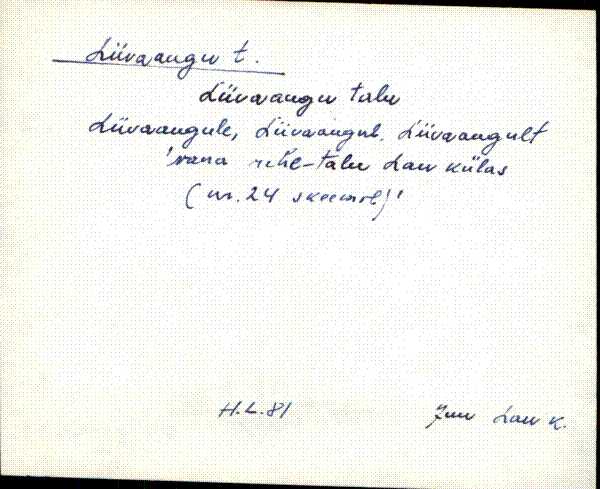 Liivaaugu t.
Liivaaugu talu
Liivaaugule, Liivaaugul, Liivaaugult
'vana rehe-talu Lau külas
(nr. 24 skeemil)'
H.L. 81
Juu Lau k.